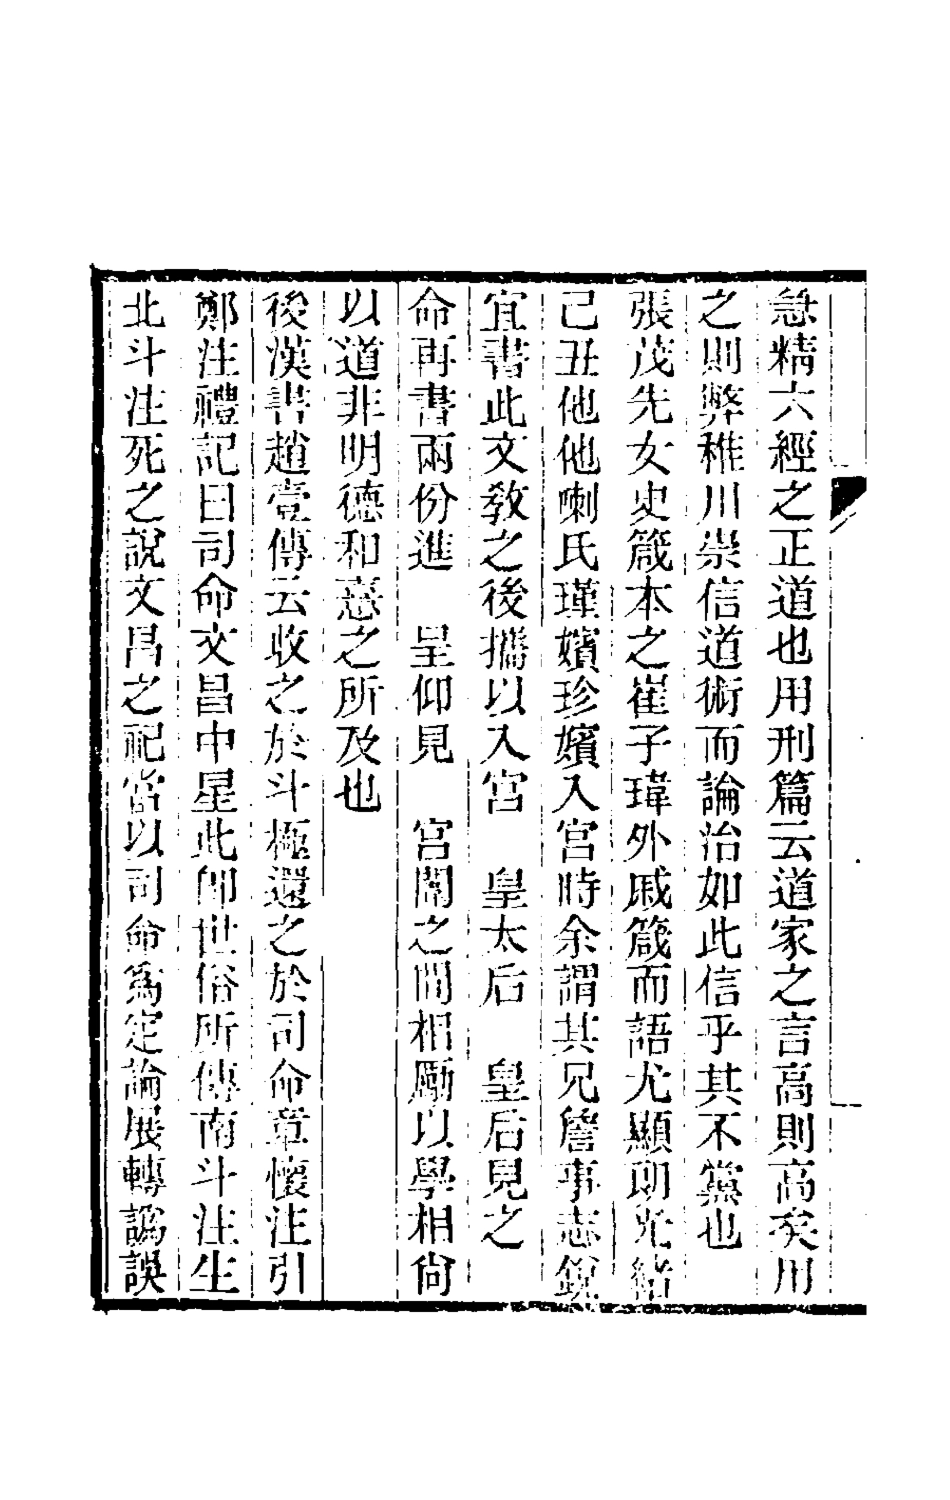 急精六經之正道也用刑篇云道家之言高則高矣用
之則弊稚川崇信道術而論治如此信乎其不黨也
張茂先女史箴本之崔子瑋外戚箴而語尤顯朗光緒
己丑他他喇氏瑾嬪珍嬪入宮時余謂其兄詹事志鋭
宜書此文教之後攜以入宮　皇太后　皇后見之
命再書兩份進　呈仰見　宮闈之間相勵以學相尙
以道非明德和憙之所及也
後漢書趙壹傳云收之於斗極還之於司命章懷注引
鄭注禮記曰司命文昌中星此卽世俗所傳南斗注生
北斗注死之說文昌之祀當以司命爲定論展轉譌誤